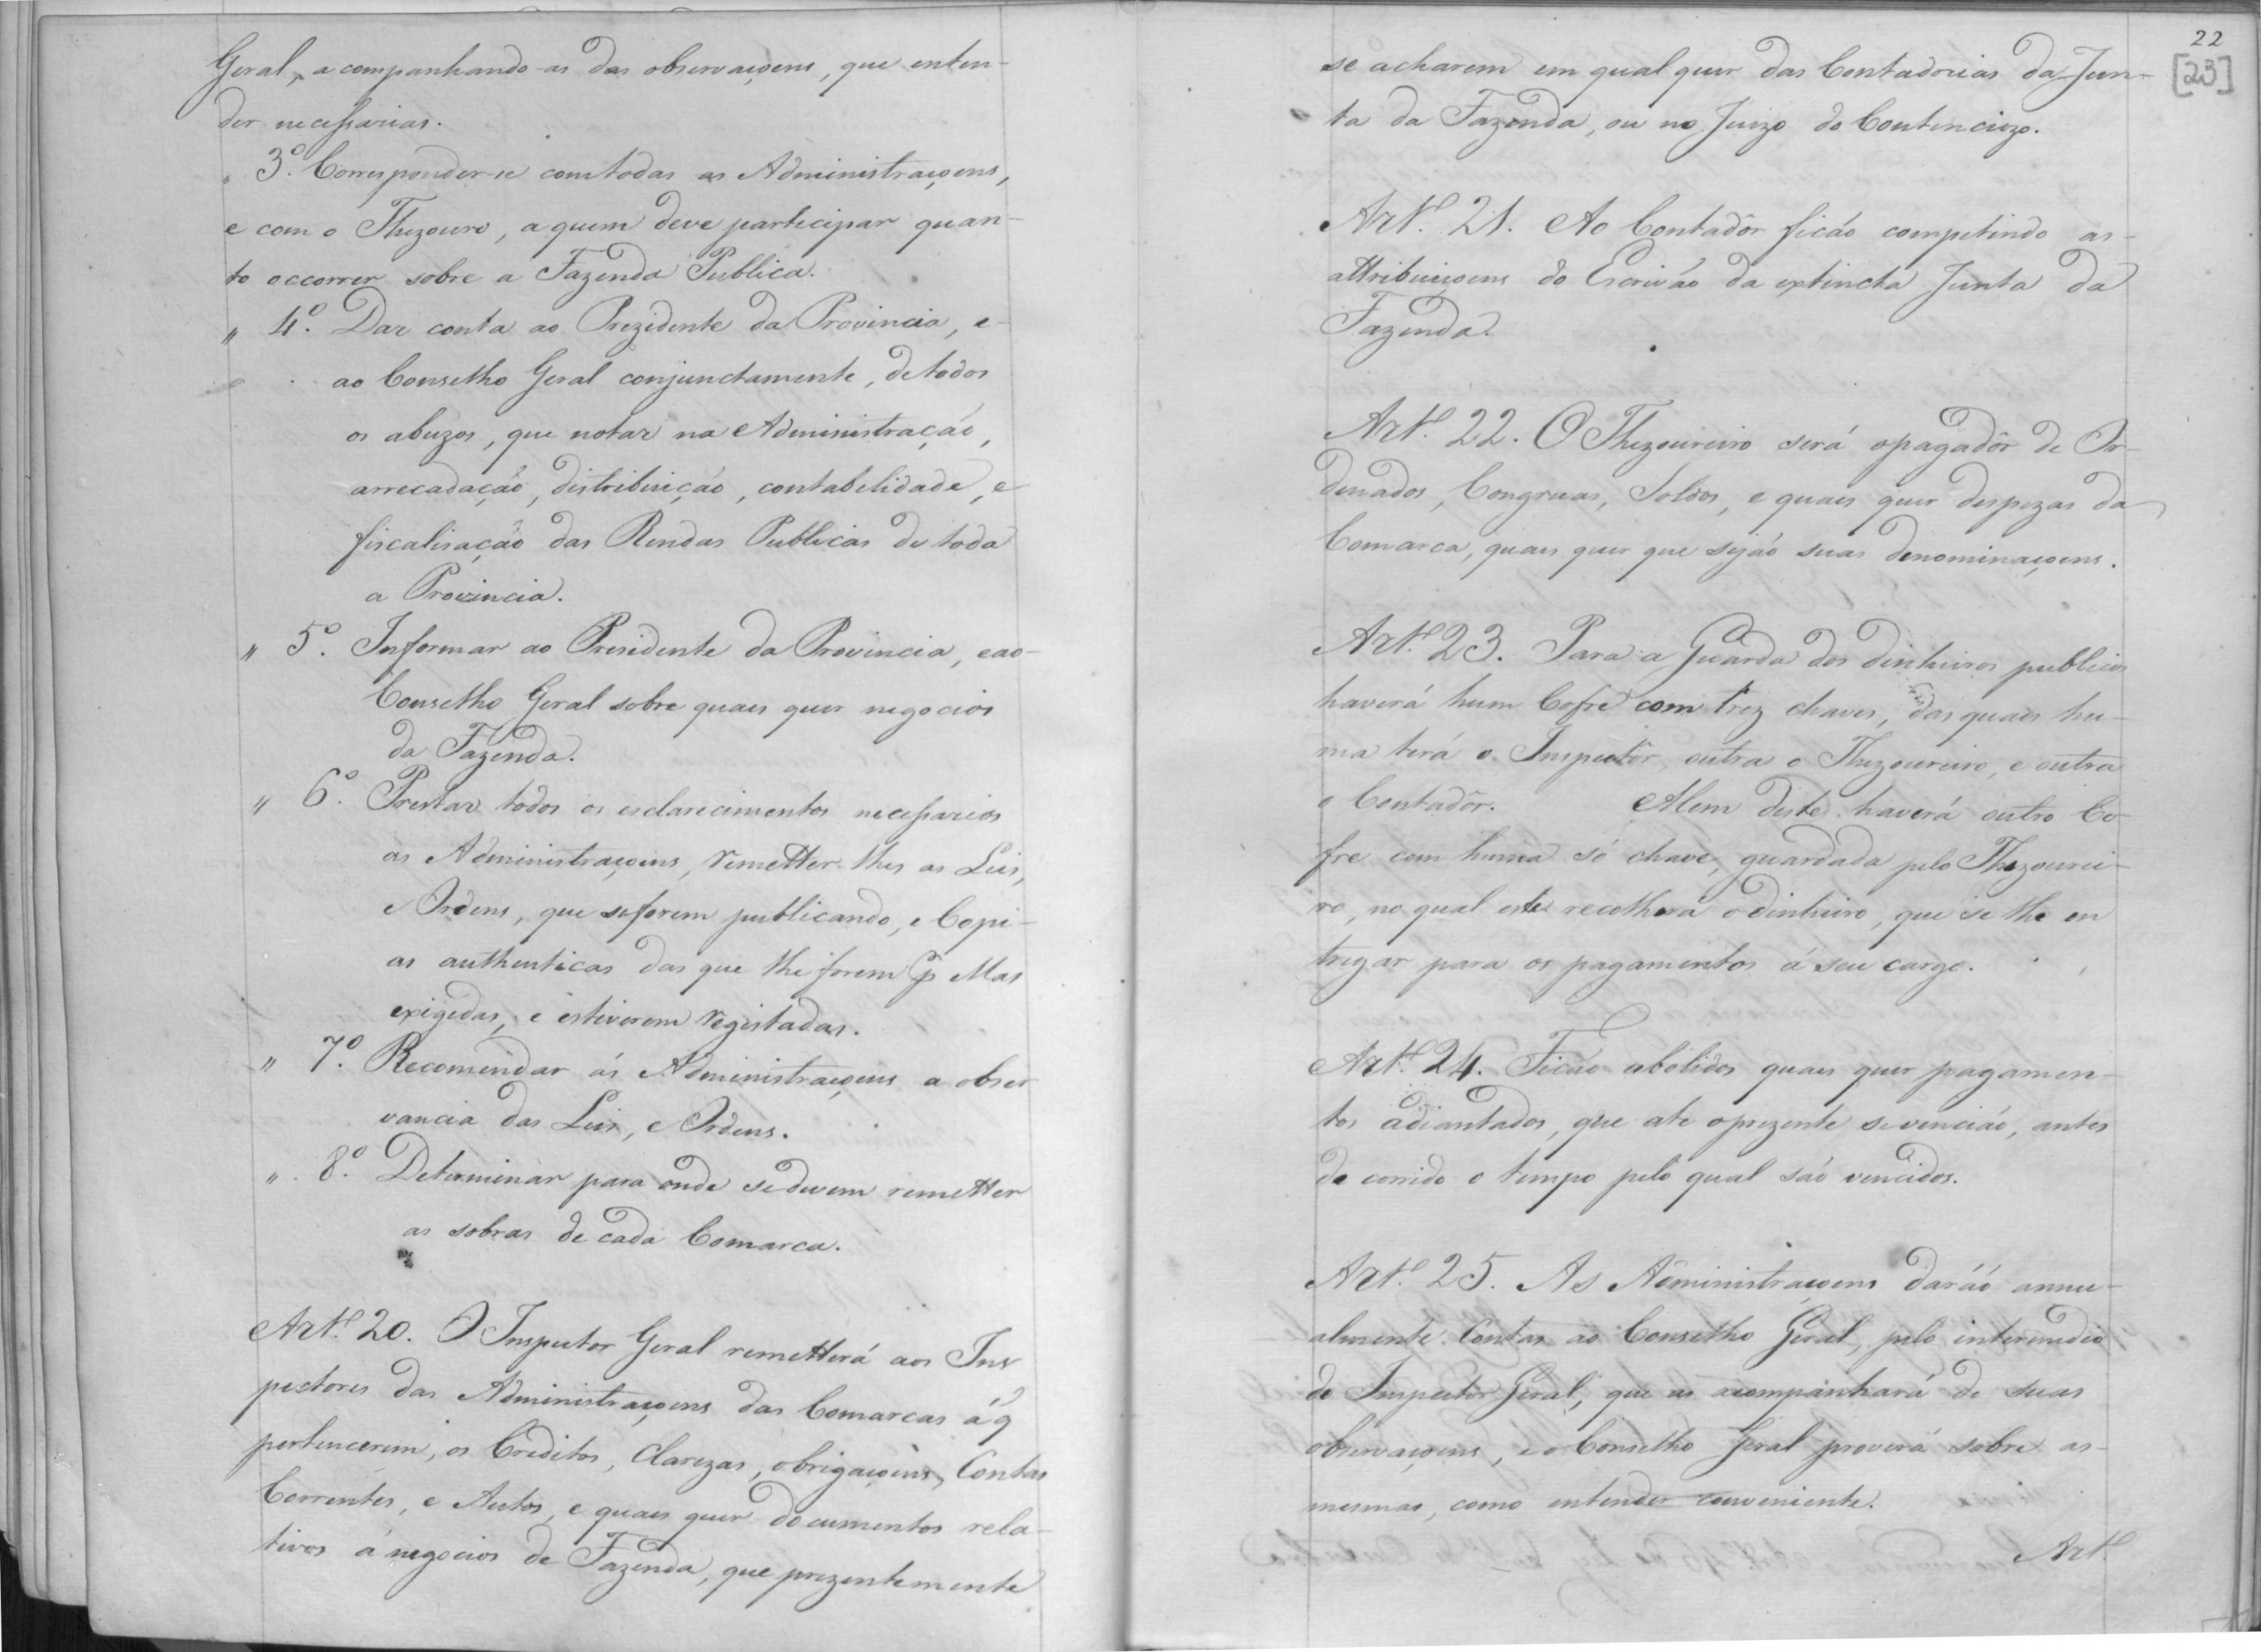 Geral, acompanhando-as das observaçoens, que enten-
der necessarias.
„ 3º. Corresponder-se com todas as Administraçoens,
e com o Thezouro, a quem deve participar quan-
to occorrer sobre a Fazenda Publica.
„ 4º. Dar conta ao Prezidente da Provincia, e
ao Conselho Geral conjunctamente, de todos
os abuzos, que notar na Administração,
arrecadação, distribuição, contabelidade, e
fiscalisação das Rendas Publicas de toda
a Provincia.
„ 5º. Informar ao Presidente da Provincia, e ao
Conselho Geral sobre quaes quer negocios
da Fazenda.
„ 6º. Prestar todos os esclarecimentos necessarios
as Administraçoens, remetter-lhes as Leis,
e Ordens, que se forem publicando, e Copi-
as authenticas das que lhe forem p. Ellas
exigedas, e estiverem registadas.
„ 7º. Recomendar ás Administraçoens a obser
vancia das Leis, e Ordens.
„ 8º. Determinar para onde se devem remetter
as sobras de cada Comarca.
Artº. 20. O Inspector Geral remetterá aos Ins
pectores das Administraçoens das Comarcas á q
pertencerem, os Creditos, Clarezas, obrigaçoens, Contas
Correntes, e Autos, e quaes quer documentos rela-
tivos á negocios de Fazenda, que prezentemente
22
[23]
se acharem em qual quer das Contadorias da Jun-
ta da Fazenda, ou no Juizo do Contenciozo.
Artº. 21. Ao Contadôr ficáo competindo as
attribuiçoens do Escriváo da extincta Junta da
Fazenda.
Artº. 22. O Thezoureiro será o pagadôr de Or-
denados, Congruas, Soldos, e quaes quer despezas da
Comarca, quaes quer que sejáo suas denominaçoens.
Artº. 23. Para a Guarda dos dinheiros publicos
haverá hum Cofre com trez chaves, das quaes hu-
ma terá o Inspectôr, outra o Thezoureiro, e outra
o Contadôr. Alem deste haverá outro Co-
fre com huma só chave, guardada pelo Thezourei-
ro, no qual este recolherá o dinheiro, que se lhe en
tregar para os pagamentos á seu cargo.
Artº. 24. Ficáo abolidos quaes quer pagamen-
tos adiantados, que ate o prezente se venciáo, antes
de corrido o tempo pelo qual sáo vencidos.
Artº. 25. As Administraçoens daráo annu-
almente Contas ao Conselho Geral, pelo intermedio
do Inspectôr Geral, que as acompanhará de suas
observaçoens, e o Conselho Geral proverá sobre as
mesmas, como entender conveniente.
Artº.